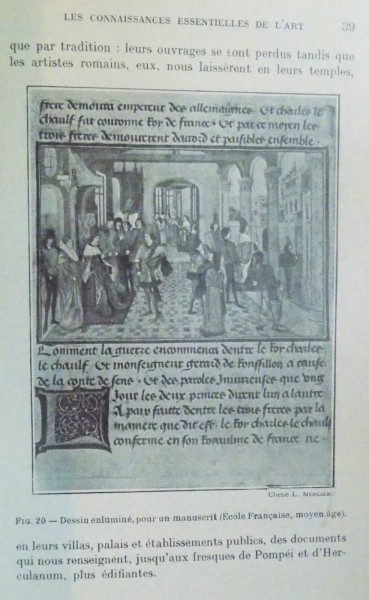 LES CONNAISSANCES ESSENTIELLES DE L'ART 39
que par tradition : leurs ouvrages se sont perdus tandis que
les artistes romains, eux, nous laissèrent en leurs temples,
frere demoura empereur des allemaignes · Et charles le
chaulf fut couronne Roy de france · Et par ce moyen les
trois freres demourerent dacord et paisibles ensemble ·
Comment la guerre encommenca dentre le Roy charles
le chaulf Et monseigneur gerard de Roussillon a cause
de la conte de sens · Et des paroles Iniurieuses que ung
Jour les deux princes dirent lun a lautre
A paix faitte dentre les trois freres par la
maniere que dit est · le Roy charles le chaulf
conferme en son Royaulme de france ne ·
Cliché L. MEUNIER.
FIG. 20 — Dessin enluminé, pour un manuscrit (École Française, moyen âge).
en leurs villas, palais et établissements publics, des documents
qui nous renseignent, jusqu'aux fresques de Pompéi et d'Her-
culanum, plus édifiantes.